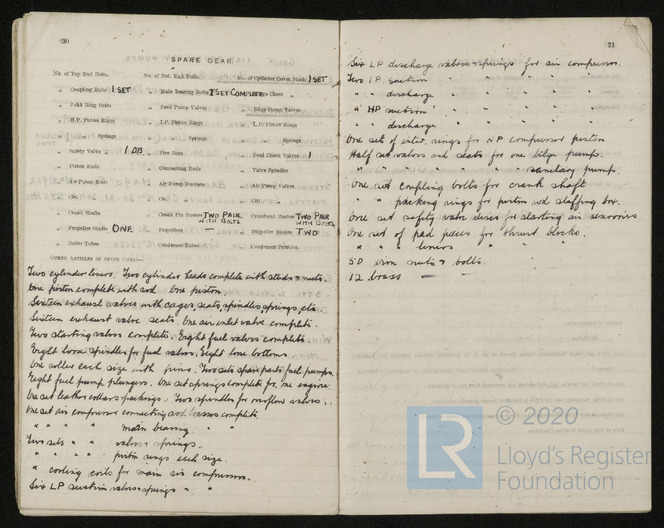 20
SPARE GEAR.
No. of Top End Bolts. No. of Bot. End Bolts. No. of Cylinder Cover Studs 1 SET
" Coupling Bolts 1 SET " Main Bearing Bolts 2 SET COMPLETE " Valve Chest "
" Junk Ring Bolts " Feed Pump Valves " Bilge Pump Valves
" H.P. Piston Rings " I.P. Piston Rings " L.P. Piston Rings
" " Springs " " Springs " " Springs
" Safety Valve " 1 " Fire Bars " Feed Check Valves 1
" Piston Rods " Connecting Rods " Valve Spindles
" Air Pump Rods " Air Pump Buckets " Air Pump Valves
" Cir. " " Cir. " " Cir. "
" Crank Shafts " Crank Pin Bushes TWO PAIR WITH BOLTS " Crosshead Bushes TWO PAIR WITH BOLTS
" Propeller Shafts ONE " Propellers — " Propeller Blades TWO
" Boiler Tubes " Condenser Tubes " Condenser Ferrules
OTHER ARTICLES OF SPARE GEAR:—
Two cylinder liners. Two cylinder heads complete with studs & nuts.
One piston complete with rod One piston.
Sixteen exhaust valves with cages, seats, spindles, springs, etc.
Sixteen exhaust valve seats. One air inlet valve complete.
Two starting valves complete. Eight fuel valves complete.
Eight loose spindles for fuel valves. Eight lone bottoms.
One roller each size with pins. Two sets spare parts fuel pumps.
Eight fuel pump plungers. One set springs complete for one engine
One set leather collars & packings. Two spindles for overflow valves.
One set air compressor connecting rod brasses complete
" " " " main bearing " "
Two sets " " valves & springs.
" " " " piston rings each size.
" cooling coils for main air compressors.
Six LP suction valves & springs " "
21
Six LP discharge valves & springs for air compressors.
Two I.P. suction " " " "
" " discharge " " " "
" HP suction " " " "
" " discharge " " " "
One set of outer rings for HP compressor piston
Half set valves and seats for one bilge pump.
" " " " " " sanitary pump.
One set coupling bolts for crank shaft
" " packing rings for piston rod stuffing box.
One set safety valve discs for starting air reservoirs
One set of pad pieces for thrust blocks.
" " " liners " " "
50 iron nuts & bolts.
12 brass — —
LR
© 2020
Lloyd's Register
Foundation